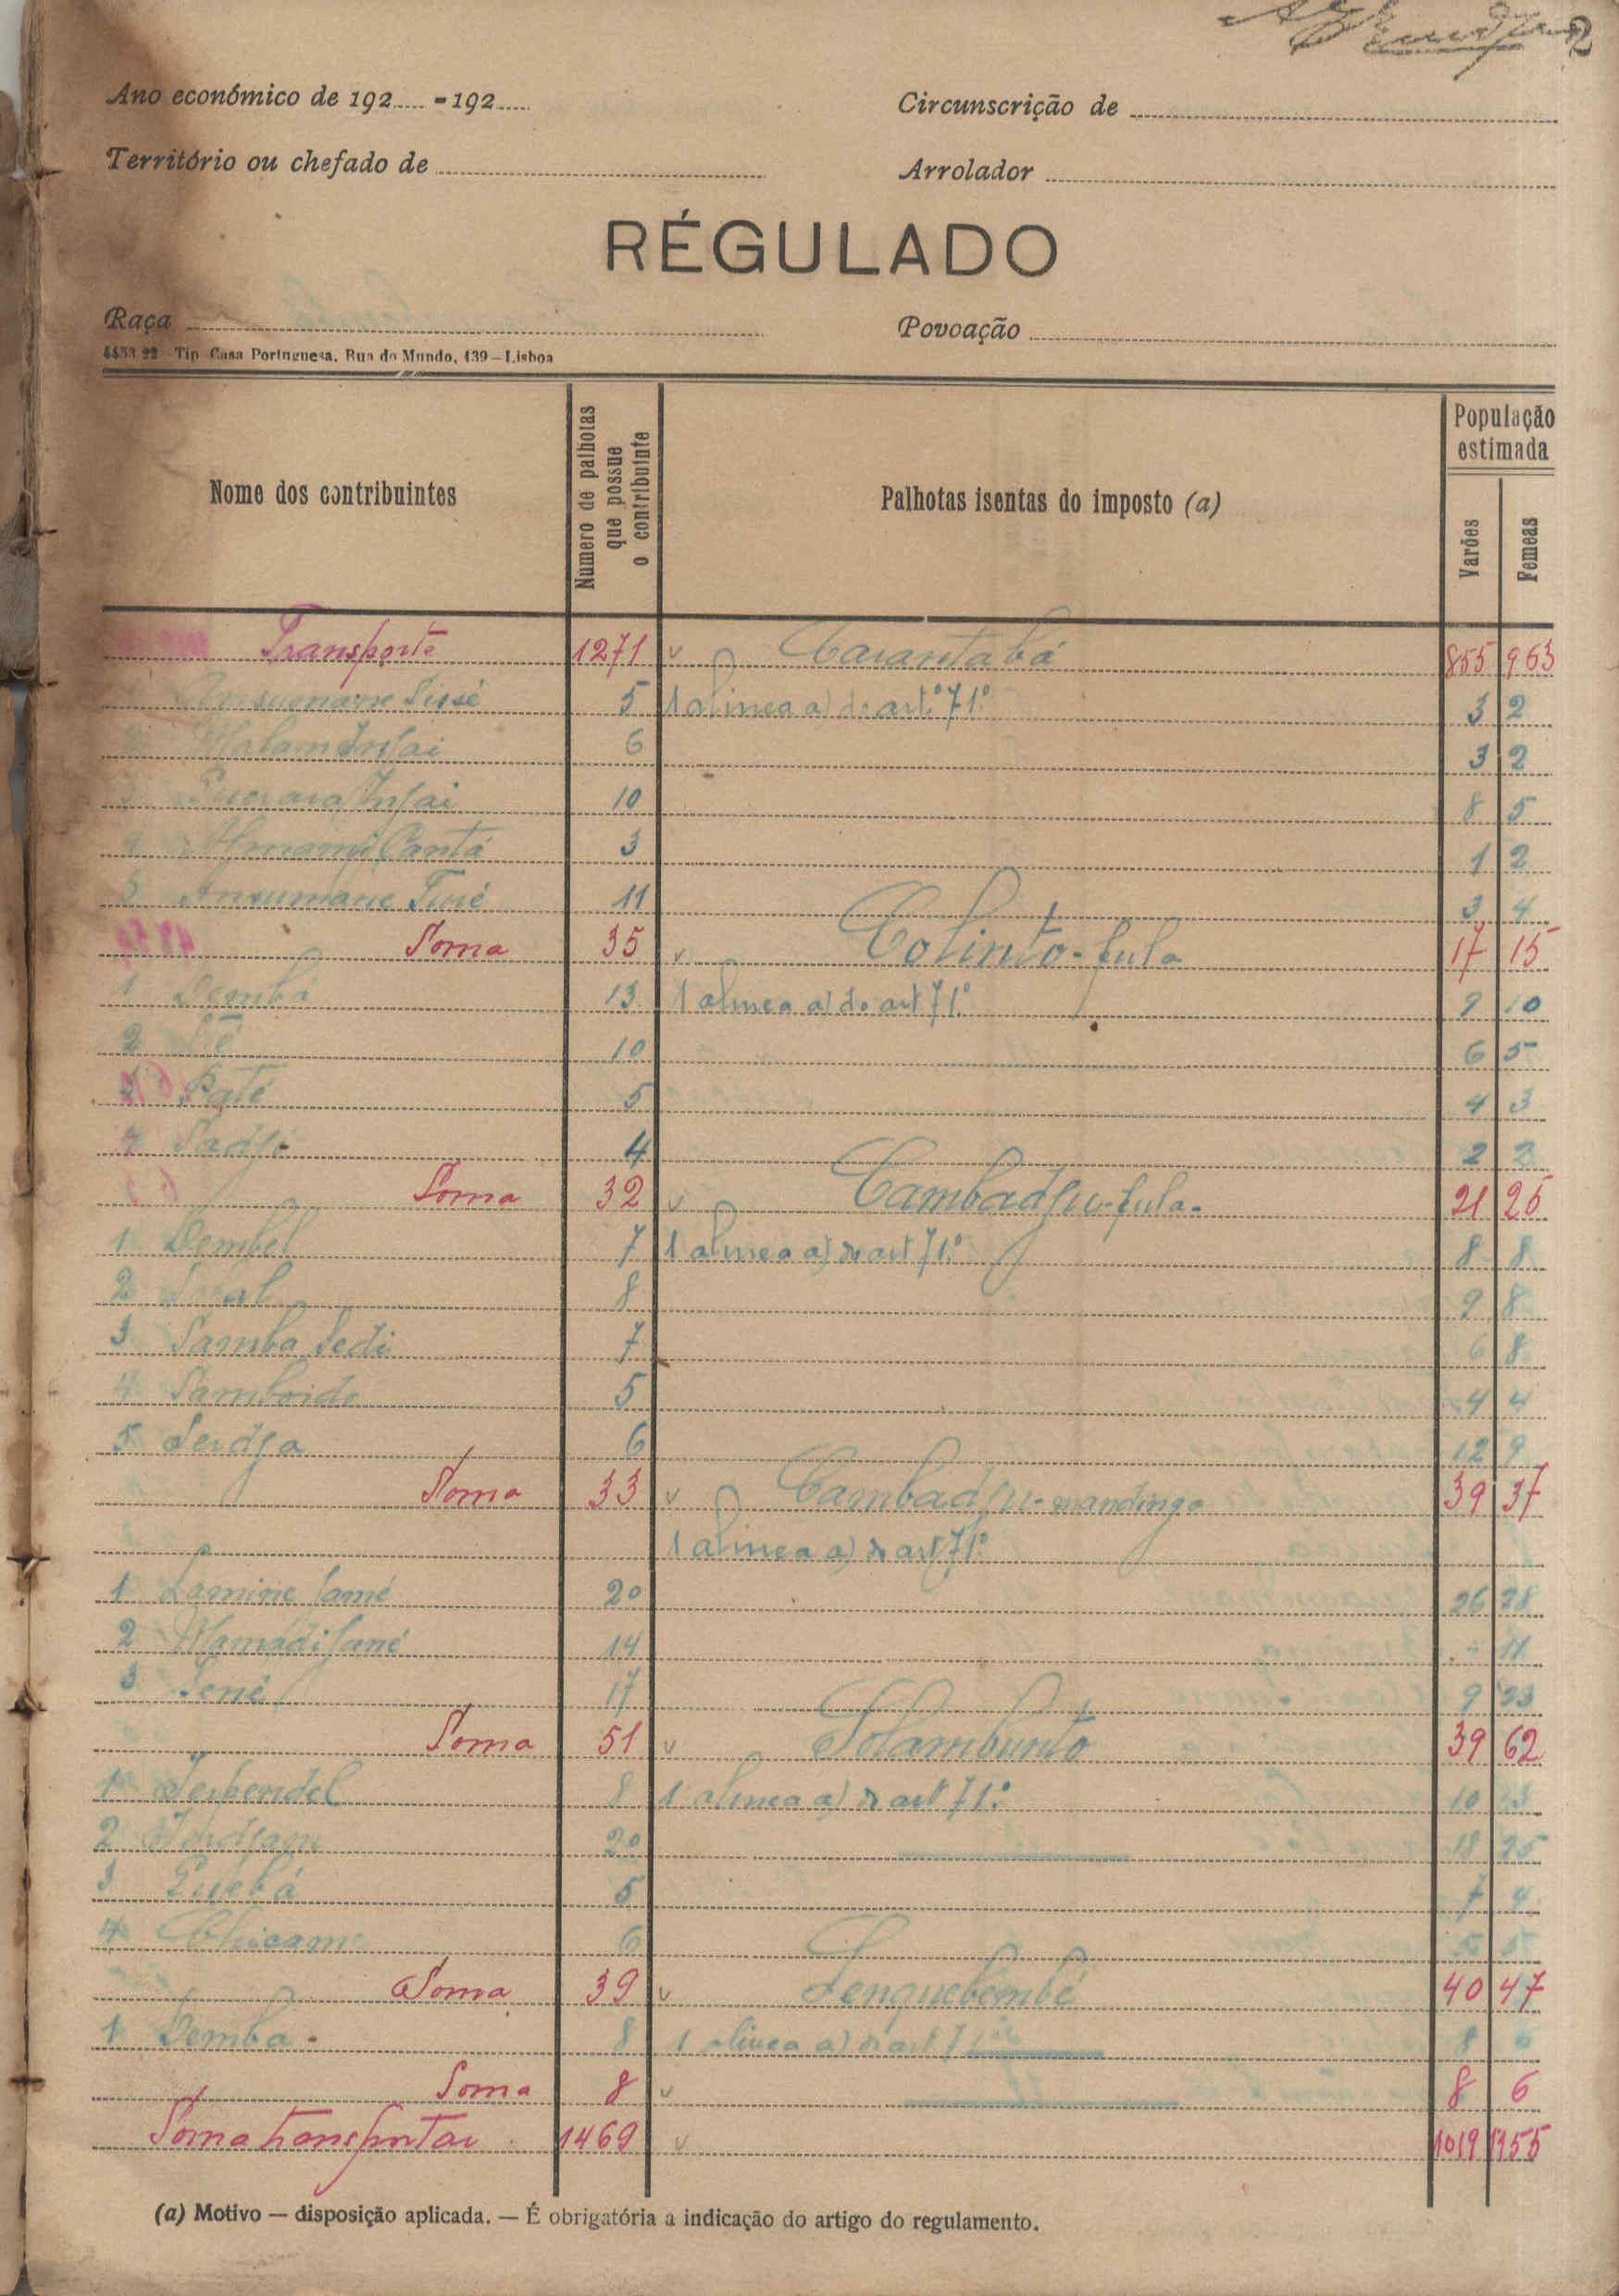 2
Ano económico de 192 -192
Circunscrição de
Território ou chefado de
Arrolador
RÉGULADO
Raça
Povoação
Tip Casa Portuguesa, Rua do Mundo, 139 – Lisboa
Nome dos contribuintes
Numero de palhotas que possue o contribuinte
Palhotas isentas do imposto (a)
População estimada
Varões
Femeas
Transporte 1271 v Carantabá 855 963
5 1 alinea a) do art.º 71.º 3 2
2 Malam Injai 6 3 2
3 Injai 10 8 5
4 3 1 2
5 Ansumane Turé 11 3 4
Soma 35 v Colinto-fula 17 15
1 Dembá 13 1 alinea a) do art 71.º 9 10
2 10 6 5
3 Paté 5 4 3
4 Sadjo 4 2 2
Soma 32 v Cambadju-fula. 21 25
1 Dembel 7 1 alinea a) do art 71.º 8 8
2 8 9 8
3 Samba Sedi 7 6 8
4 Samboido 5 4 4
5 6 12 9
Soma 33 v Cambadju-mandinga 39 37
1 alinea a) do art 71.º
1 Lamine Sané 20 26 28
2 Mamadi Sané 14 11
3 Sené 17 9 23
Soma 51 v 39 62
1 8 1 alinea a) do art 71.º 10 13
2 20 18 25
3 Quebá 5 7 4
4 6 5 5
Soma 39 v Senquebembé 40 47
1 Demba 8 1 alinea a) do art 71.º 8 6
Soma 8 v 8 6
Soma transportar 1469 v 1019 1155
(a) Motivo — disposição aplicada. — É obrigatória a indicação do artigo do regulamento.